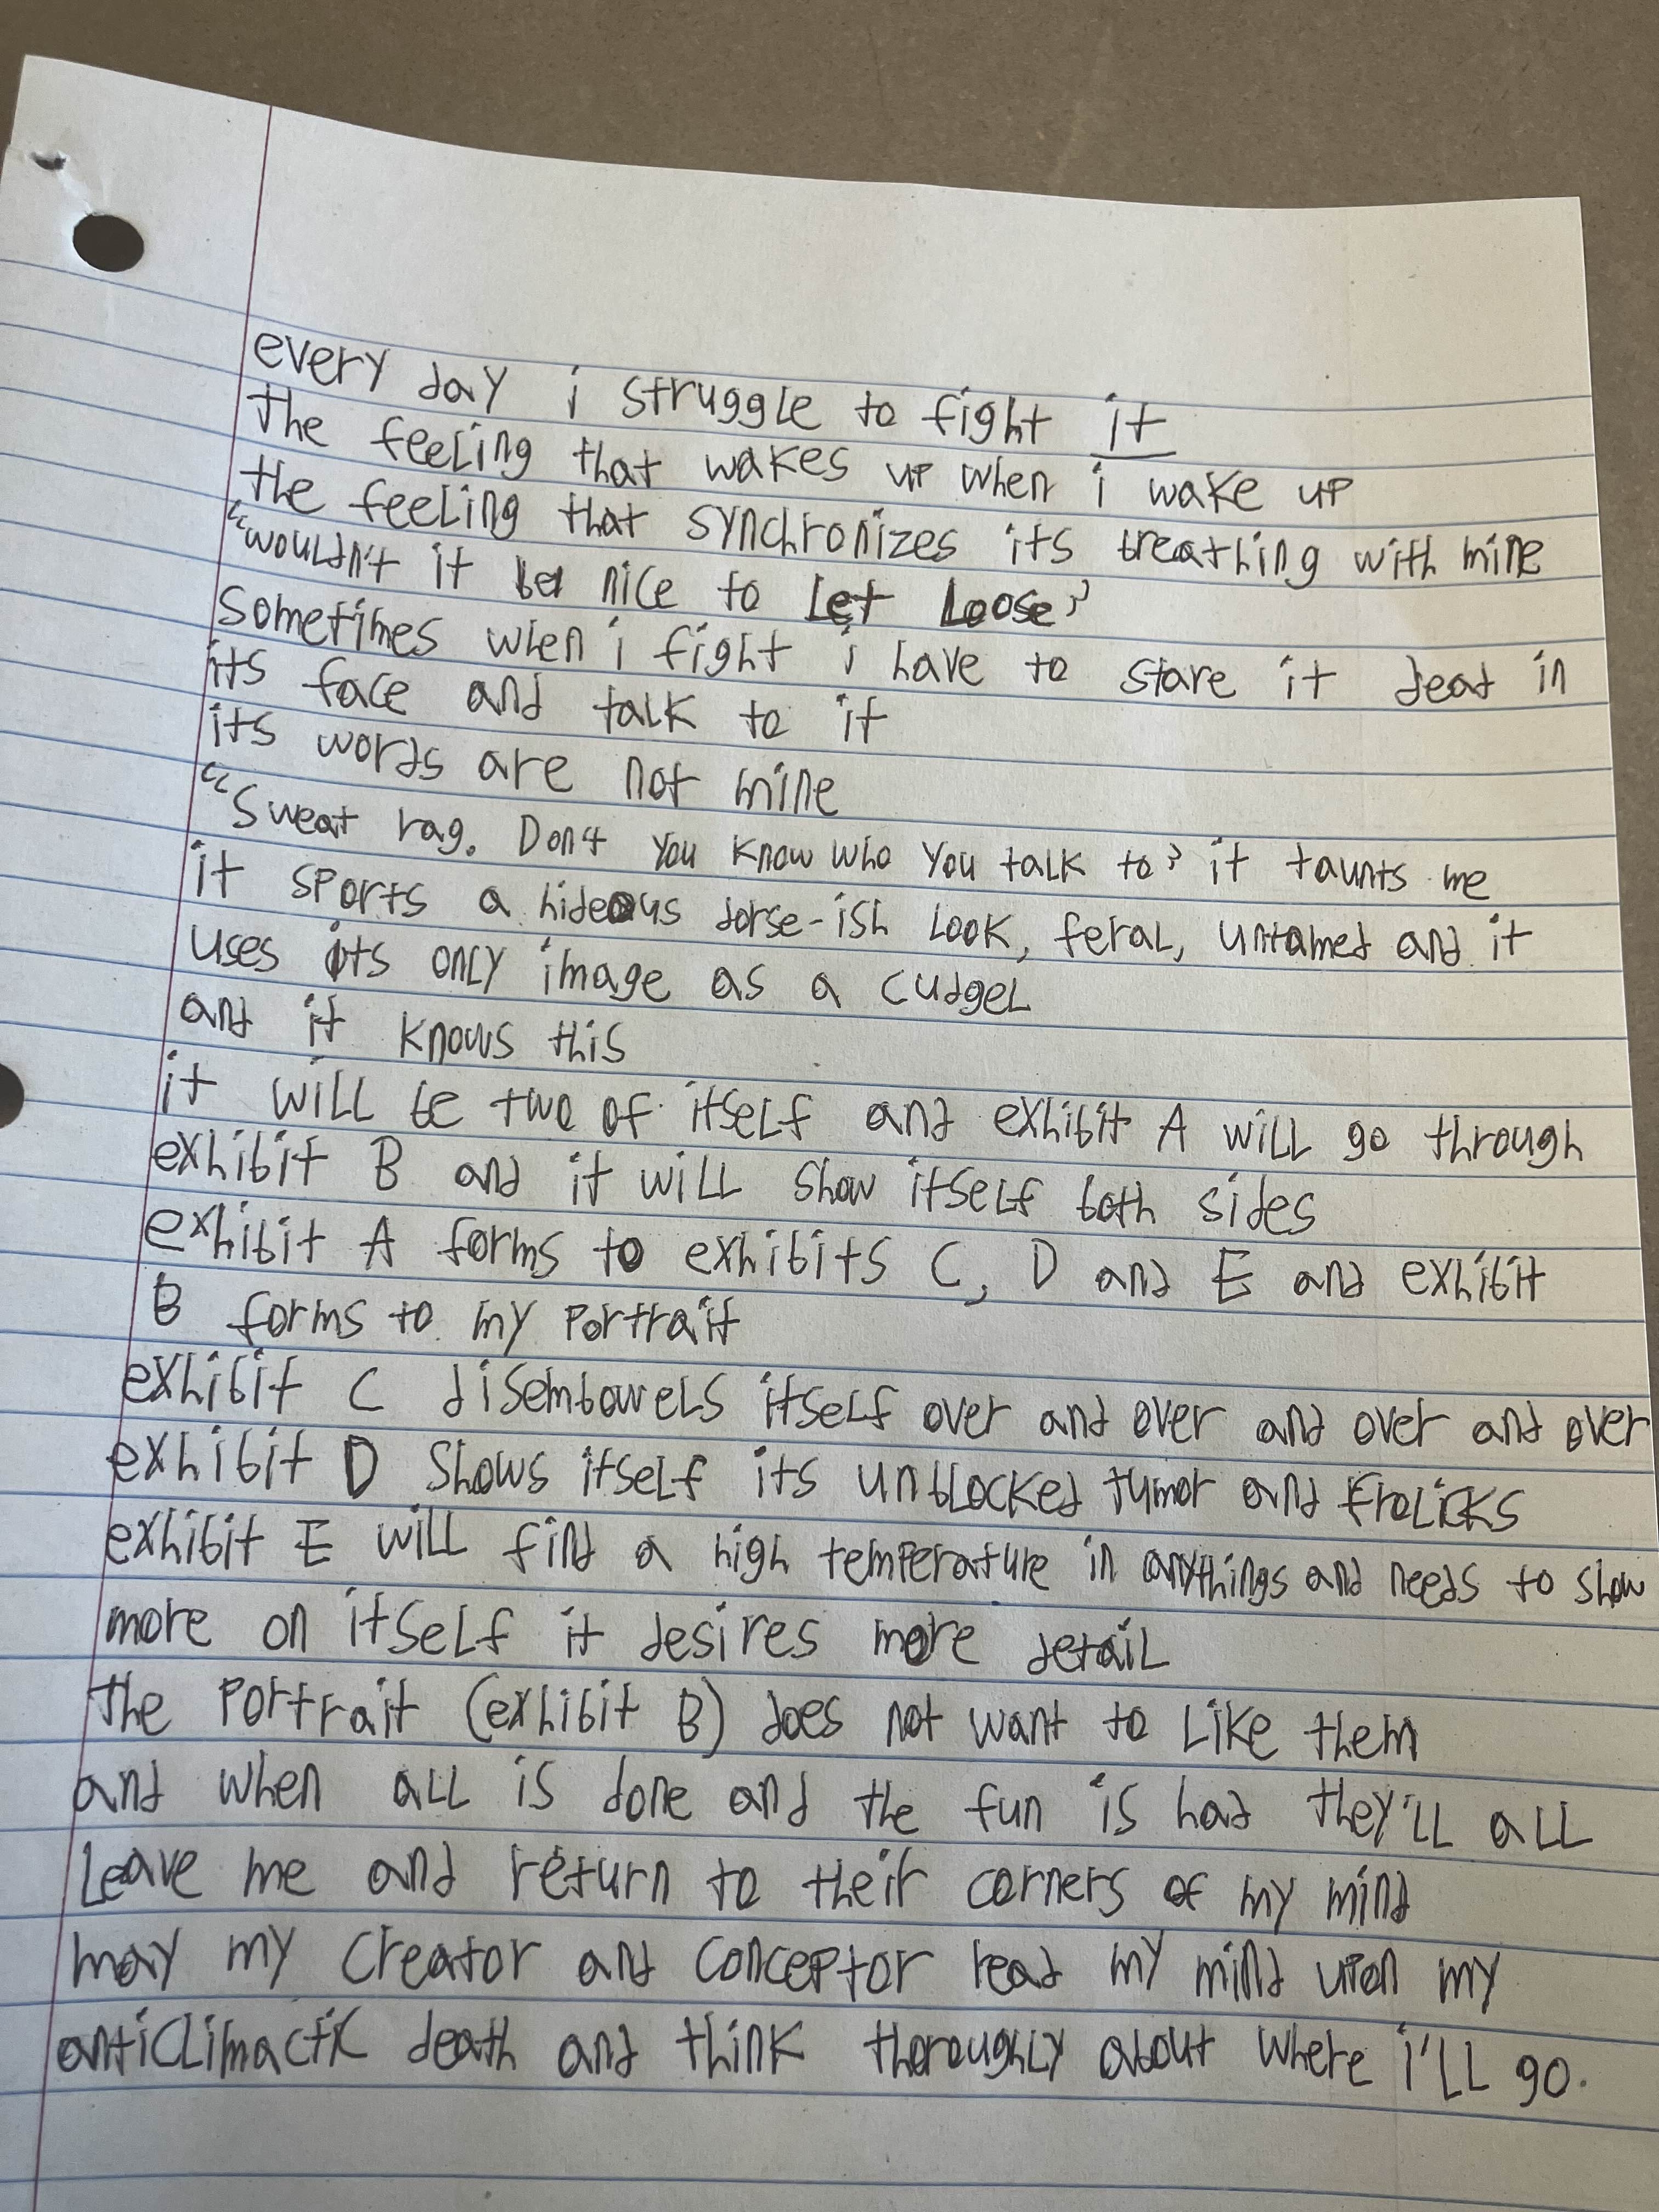 every day i struggle to fight it
the feeling that wakes up when i wake up
the feeling that synchronizes its breathing with mine
"wouldn't it be nice to let loose?
sometimes when i fight i have to stare it dead in
its face and talk to it
its words are not mine
"Sweat rag. Don't you know who you talk to? it taunts me
it sports a hideous dorse-ish look, feral, untamed and it
uses its only image as a cudgel
and it knows this
it will be two of itself and exhibit A will go through
exhibit B and it will show itself both sides
exhibit A forms to exhibits C, D and E and exhibit
B forms to my portrait
exhibit C disembowels itself over and over and over and over
exhibit D shows itself its unblocked tumor and frolicks
exhibit E will find a high temperature in anythings and needs to show
more on itself it desires more detail
the portrait (exhibit B) does not want to like them
and when all is done and the fun is had they'll all
leave me and return to their corners of my mind
may my creator and conceptor read my mind upon my
anticlimactic death and think thoroughly about where i'll go.